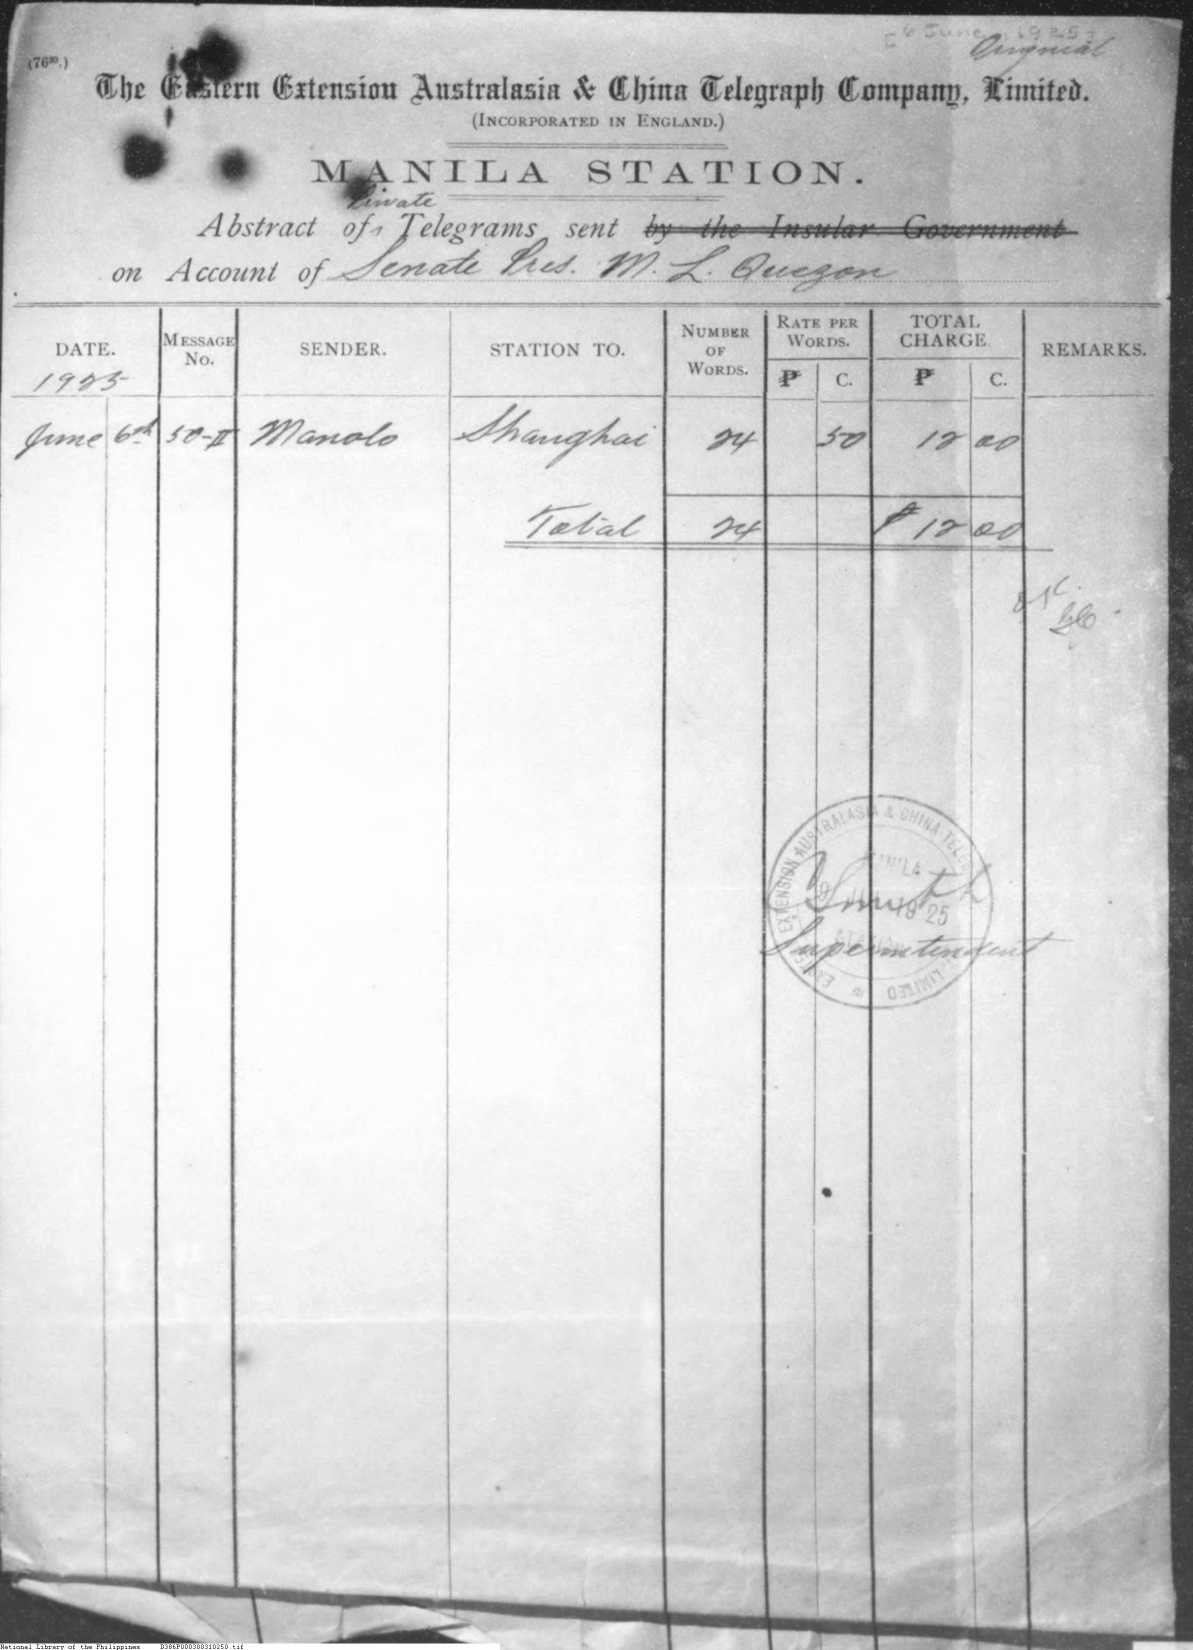 [6 June 1925]
Original
(76³⁰.)
The Eastern Extension Australasia & China Telegraph Company, Limited.
(INCORPORATED IN ENGLAND.)
MANILA STATION.
Private
Abstract of Telegrams sent by the Insular Government
on Account of Senate Pres. M. L. Quezon
DATE. MESSAGE No. SENDER. STATION TO. NUMBER OF WORDS. RATE PER WORDS. TOTAL CHARGE. REMARKS.
1925 ₱ C. ₱ C.
June 6th 50-II Manolo Shanghai 24 50 12 00
Total 24 ₱ 12 00
EXTENSION AUSTRALASIA & CHINA
MANILA
1925
LIMITED
Smith
Superintendent
National Library of the Philippines D386P000300310250.tif